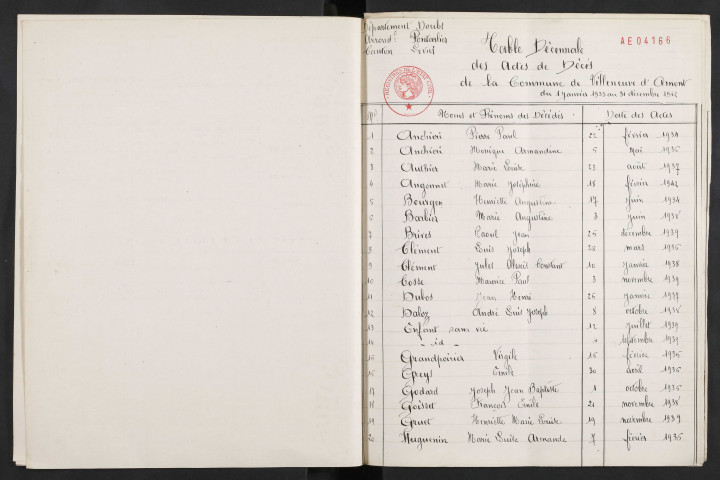 Département Doubs
Arrond.t Pontarlier
Canton Levier
AE04166
Table Décennale
des Actes de Décès
de la Commune de Villeneuve d'Amont
du 1 Janvier 1933 au 31 décembre 1942
Nos Noms et Prénoms des Décédés Date des Actes
1 Andréoni Pierre Paul 22 février 1938
2 Andréoni Monique Armandine 5 mai 1935
3 Authier Marie Louise 23 août 1937
4 Angonnet Marie Joséphine 18 février 1942
5 Bourgon Henriette Augustine 17 juin 1934
6 Barbier Marie Augustine 3 juin 1935
7 Brives Raoul Jean 25 décembre 1939
8 Clément Louis Joseph 28 mars 1935
9 Clément Jules Alexis Constant 10 janvier 1938
10 Cosse Maurice Paul 3 novembre 1939
11 Dubos Jean Henri 26 janvier 1937
12 Daloz André Louis Joseph 8 octobre 1935
13 Enfant sans vie 12 juillet 1939
14 - id - 1 septembre 1939
15 Grandpoirier Virgile 15 février 1935
16 Greys Emile 30 avril 1935
17 Godard Joseph Jean Baptiste 1 octobre 1935
18 Goisset François Emile 21 novembre 1938
19 Gruet Henriette Marie Louise 19 novembre 1939
20 Huguenin Marie Louise Armande 7 février 1935